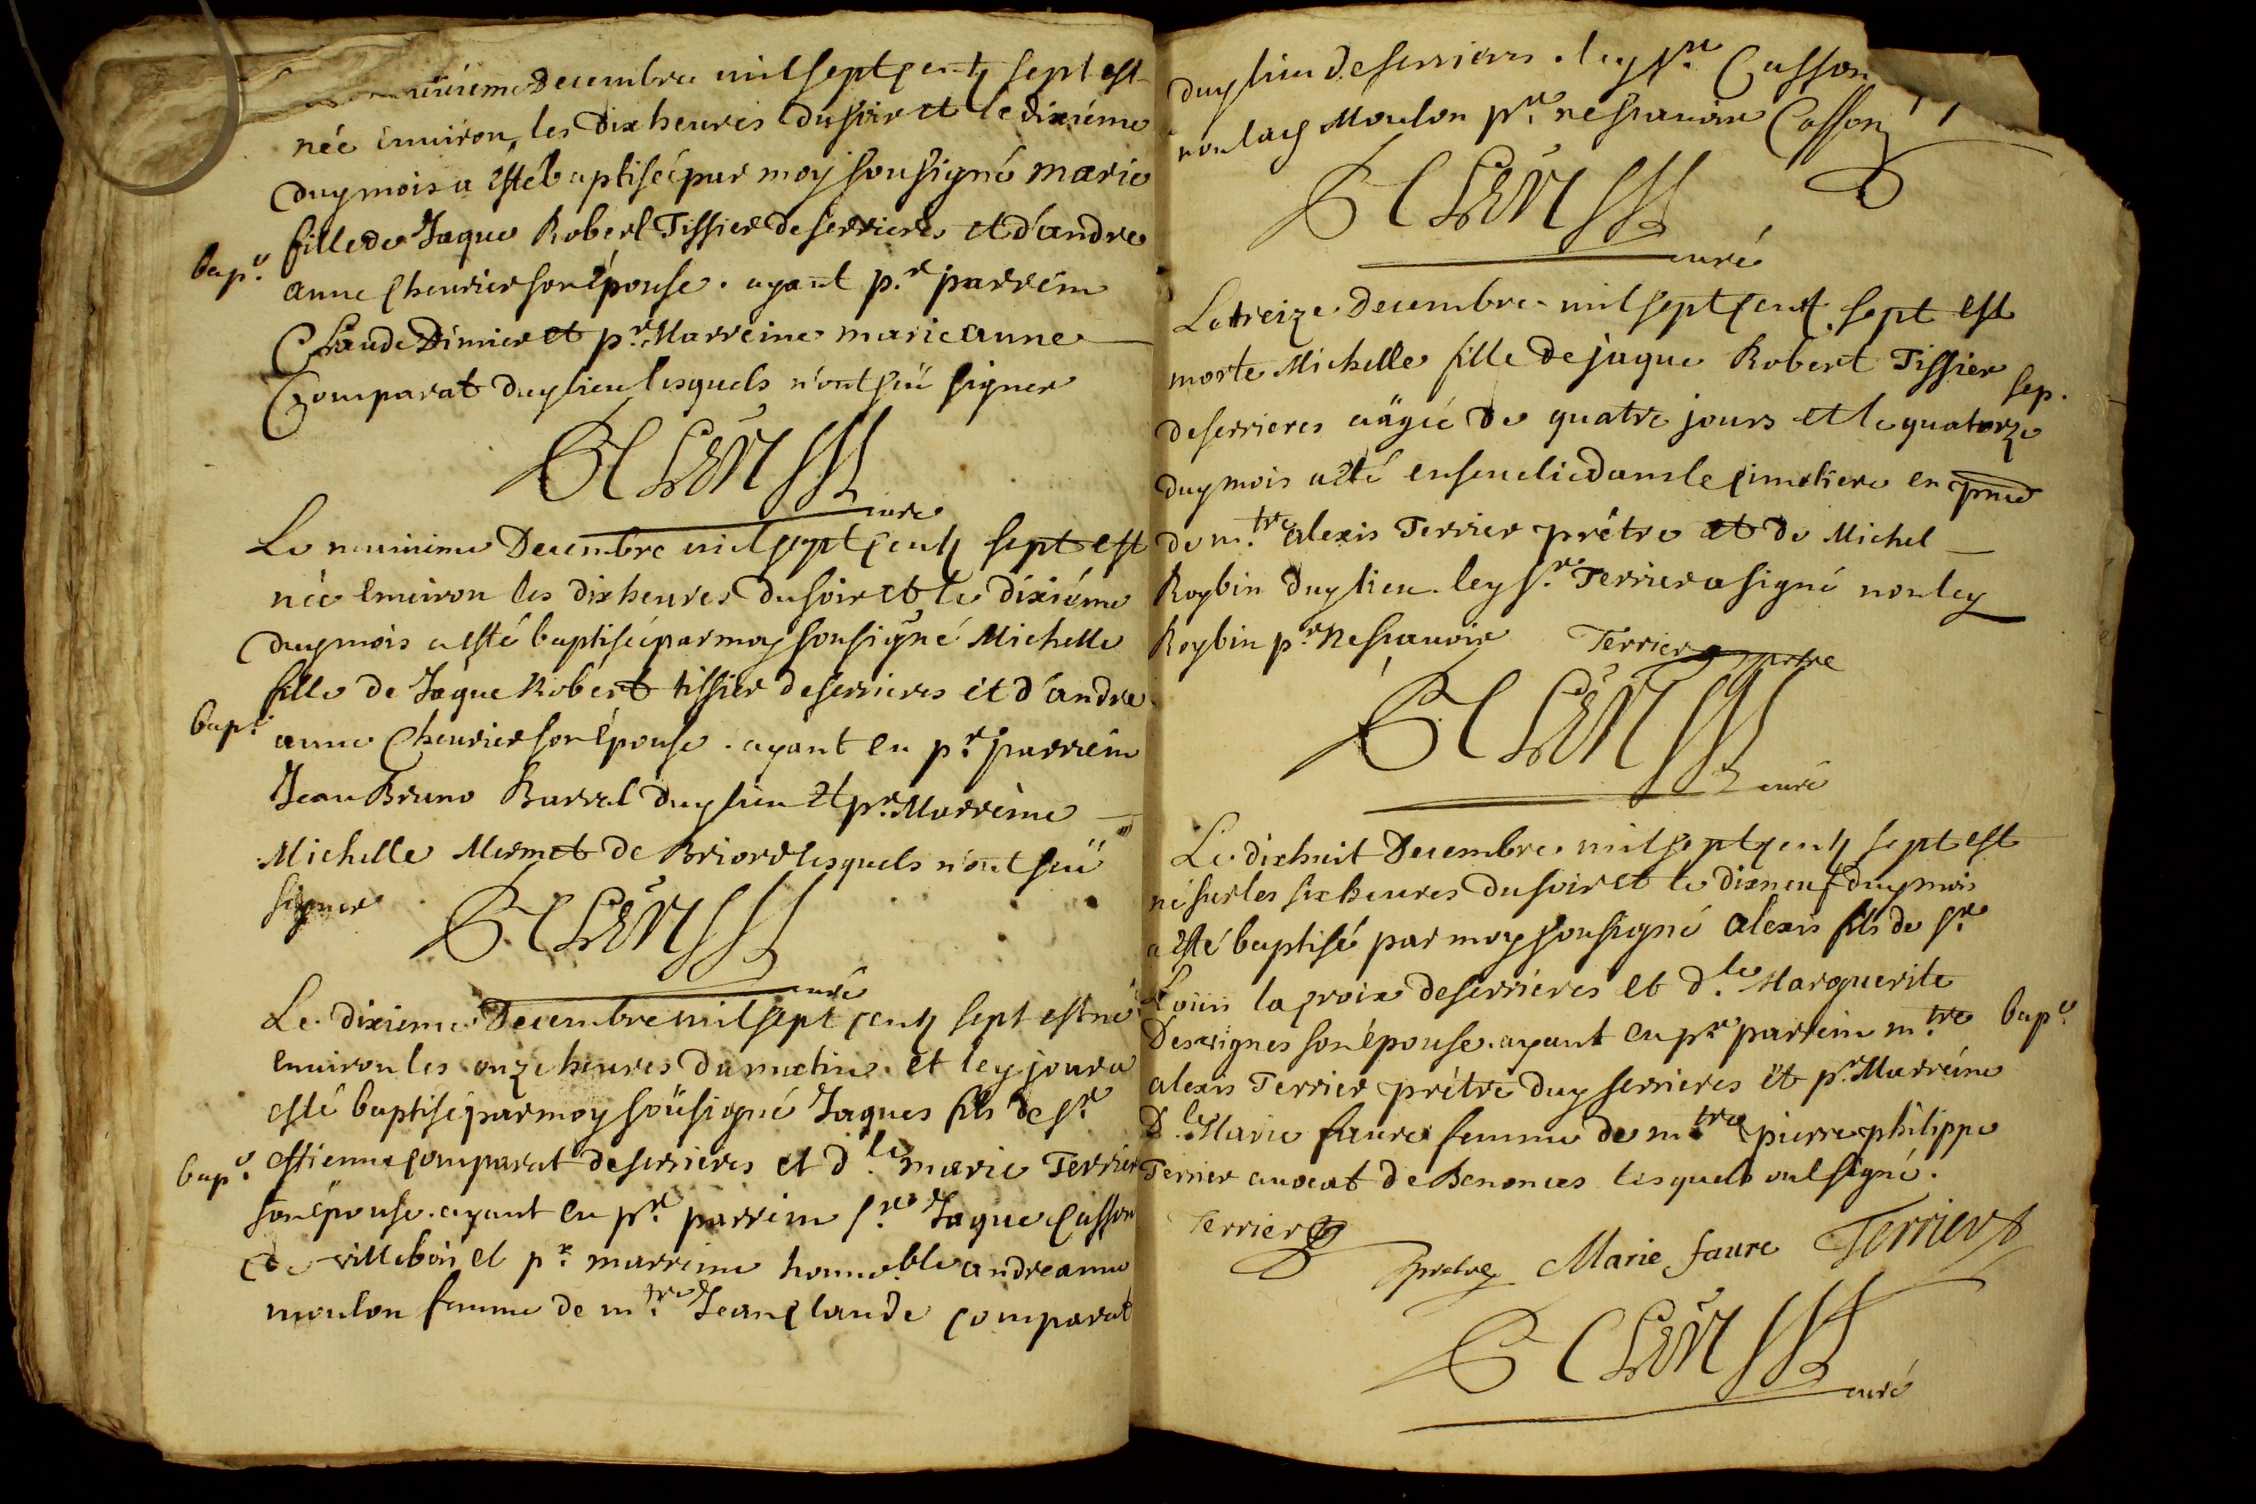 Decembre mil sept centz sept est
née environ les dix heures du soir et le dixiéme
duy mois a esté baptiséé par moy sousigné marie
fille de Jaque Robert Tissier de serrieres et d'andre
bap.e
anne Chevrier son épouse. ayant p.r parrein
Claude Dimier et p.r Marreine marie anne
Comparat duy lieu lesquels n'ont sçû signer
curé
Le neuvieme Decembre mil sept centz sept est
néé environ les dix heures du soir et le dixiéme
duy mois a esté baptiséé par moy sousigné Michelle
fille de Jaque Robert tissier de serrieres et d'andre
bap.e
anne Chevrier son épouse. ayant eu p.r parrein
Jean Bruno Barral duy lieu et p.r Marreine
Michelle Mermet de Briord lesquels n'ont sçû
signer
curé
Le dixieme Decembre mil sept centz sept est né
environ les onze heures du matin. et ley jour a
esté baptisé par moy soûsigné Jaques fils de s.r
estienne comparat de serrieres et d.le marie Terrier
bap.e
son épouse. ayant eu p.r parrein s.r Jaque Casson
de villebois et p.r marreine honno.ble andreanne
moulon femme de m.tre Jean claude comparat
duy lieu de serrieres. ley s.r Casson
non lad Moulon p.r ne sçavoir Casson
curé
Le treize Decembre mil sept centz sept est
morte Michelle fille de jaque Robert Tissier
sep.
de serrieres aâgéé de quatre jours et le quatorze
duy mois a esté ensevelie dans le cimetiere en pnce
de m.tre alexis Terrier prêtre et de Michel
Roybin duy lieu. ley s.r Terrier a signé non ley
Roybin p.r ne sçavoir Terrier prtre
curé
Le dixhuit Decembre mil sept centz sept est
né sur les six heures du soir et le dixneuf duy mois
a esté baptisé par moy sousigné alexis fils de s.r
Loüis la croix de serrieres et d.le Marguerite
Desvignes son épouse. ayant eu p.r parrein m.tre
bap.e
alexis Terrier prêtre duy serrieres et p.r Marréine
D.le Marie faure femme de m.tre pierre philippe
Terrier avocat de Benonces lesquels ont signé.
Terrier prebre Marie faure Terrier
curé